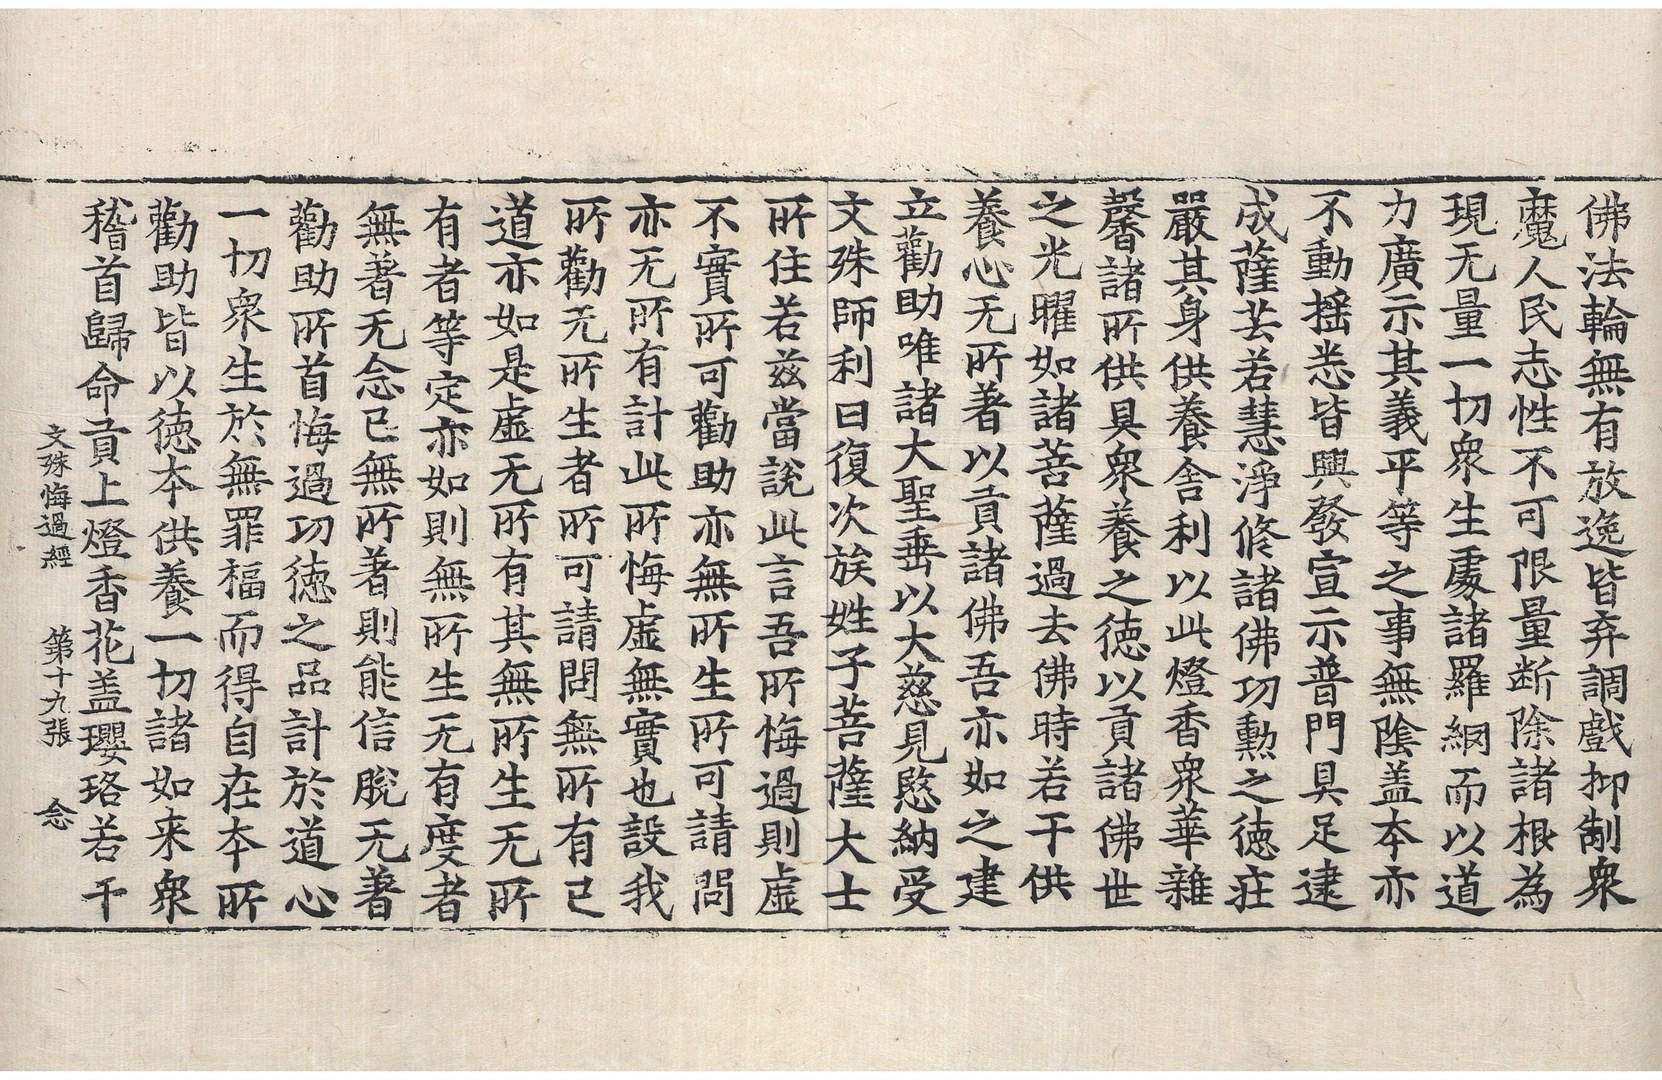 佛法輪無有放逸皆弃調戲抑制衆
魔人民志性不可限量断除諸根為
現无量一切衆生處諸羅網而以道
力廣示其義平等之事無陰盖本亦
不動揺悉皆興發宣示普門具足逮
成薩芸若慧淨修諸佛功勲之德莊
嚴其身供養舎利以此燈香衆華雜
馨諸所供具衆養之德以貢諸佛世
之光曜如諸菩薩過去佛時若干供
養心无所著以貢諸佛吾亦如之建
立勸助唯諸大聖垂以大慈見愍納受
文殊師利曰復次族姓子菩薩大士
所住若兹當説此言吾所悔過則虚
不實所可勸助亦無所生所可請問
亦无所有計此所悔虚無實也設我
所勸无所生者所可請問無所有已
道亦如是虚无所有其無所生无所
有者等定亦如則無所生无有度者
無著无念已無所著則能信脱无著
勸助所首悔過功德之品計於道心
一切衆生於無罪福而得自在本所
勸助皆以德本供養一切諸如来衆
稽首歸命貢上燈香花盖瓔珞若干
文殊悔過經 第十九張 念